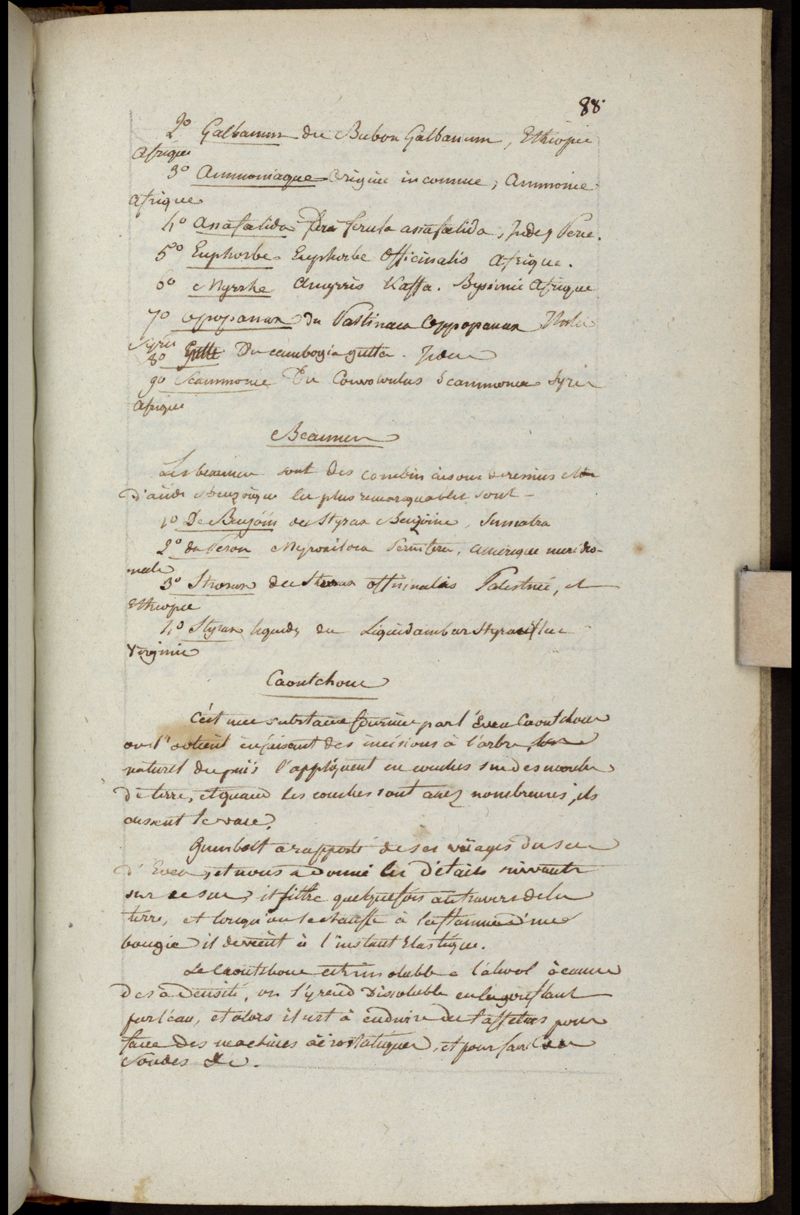 88.
2° Galbanum du Bubon Galbanum, Ethiopie
Afrique
3° Ammoniaque origine inconnue, Ammonie
Afrique
4° Assafœtida ferula assafœtida, Indes, Perse.
5° Euphorbe Euphorbe officinalis Afrique.
6° Myrrhe Amyris Kaffa. Byssinie Afrique
7° opopanax du Pastinaca Oppopanax
Syrie
8° Gutte Du cambogia gutta. Inde
9° Scammonée Du Convolvulus Scammonea Syrie
Afrique
Beaumes
Les beaumes sont des combinaisons de resines et
D'acide benzoïque les plus remarquables sont
1° De Benjoin du Styrax Benzoine, Sumatra
2° du Perou Myroxilon Peruiferu, Amerique meridio-
nale
3° Storax du Storax officinalis Palestine, et
Ethiopie
4° Styrax liquide, du Liquidambar Styraciflue
Virginie
Caoutchouc
C'est une substance fournie par l'Evea Caoutchouc
on l'obtient en faisant des incisions à l'arbre, les
naturels du païs l'appliquent en couches sur des moules
De terre, et quand les couches sont assez nombreuses, ils
cassent le vase.
Gumbolt a rapporté de ses voïages du suc
d'Evea, et nous a donné les détails suivants
sur ce suc, il filtre quelquefois au travers de la
terre, et lorsqu'on le chauffe à la flamme d'une
bougie il devient à l'instant Elastique.
Le Caoutchouc est insoluble à l'alcool à cause
De sa densité, on l'y rend Dissoluble en le gonflant
par l'eau, et alors il sert à enduire des taffetas pour
faire des machines aërostatiques, et pour faire des
Sondes &c.